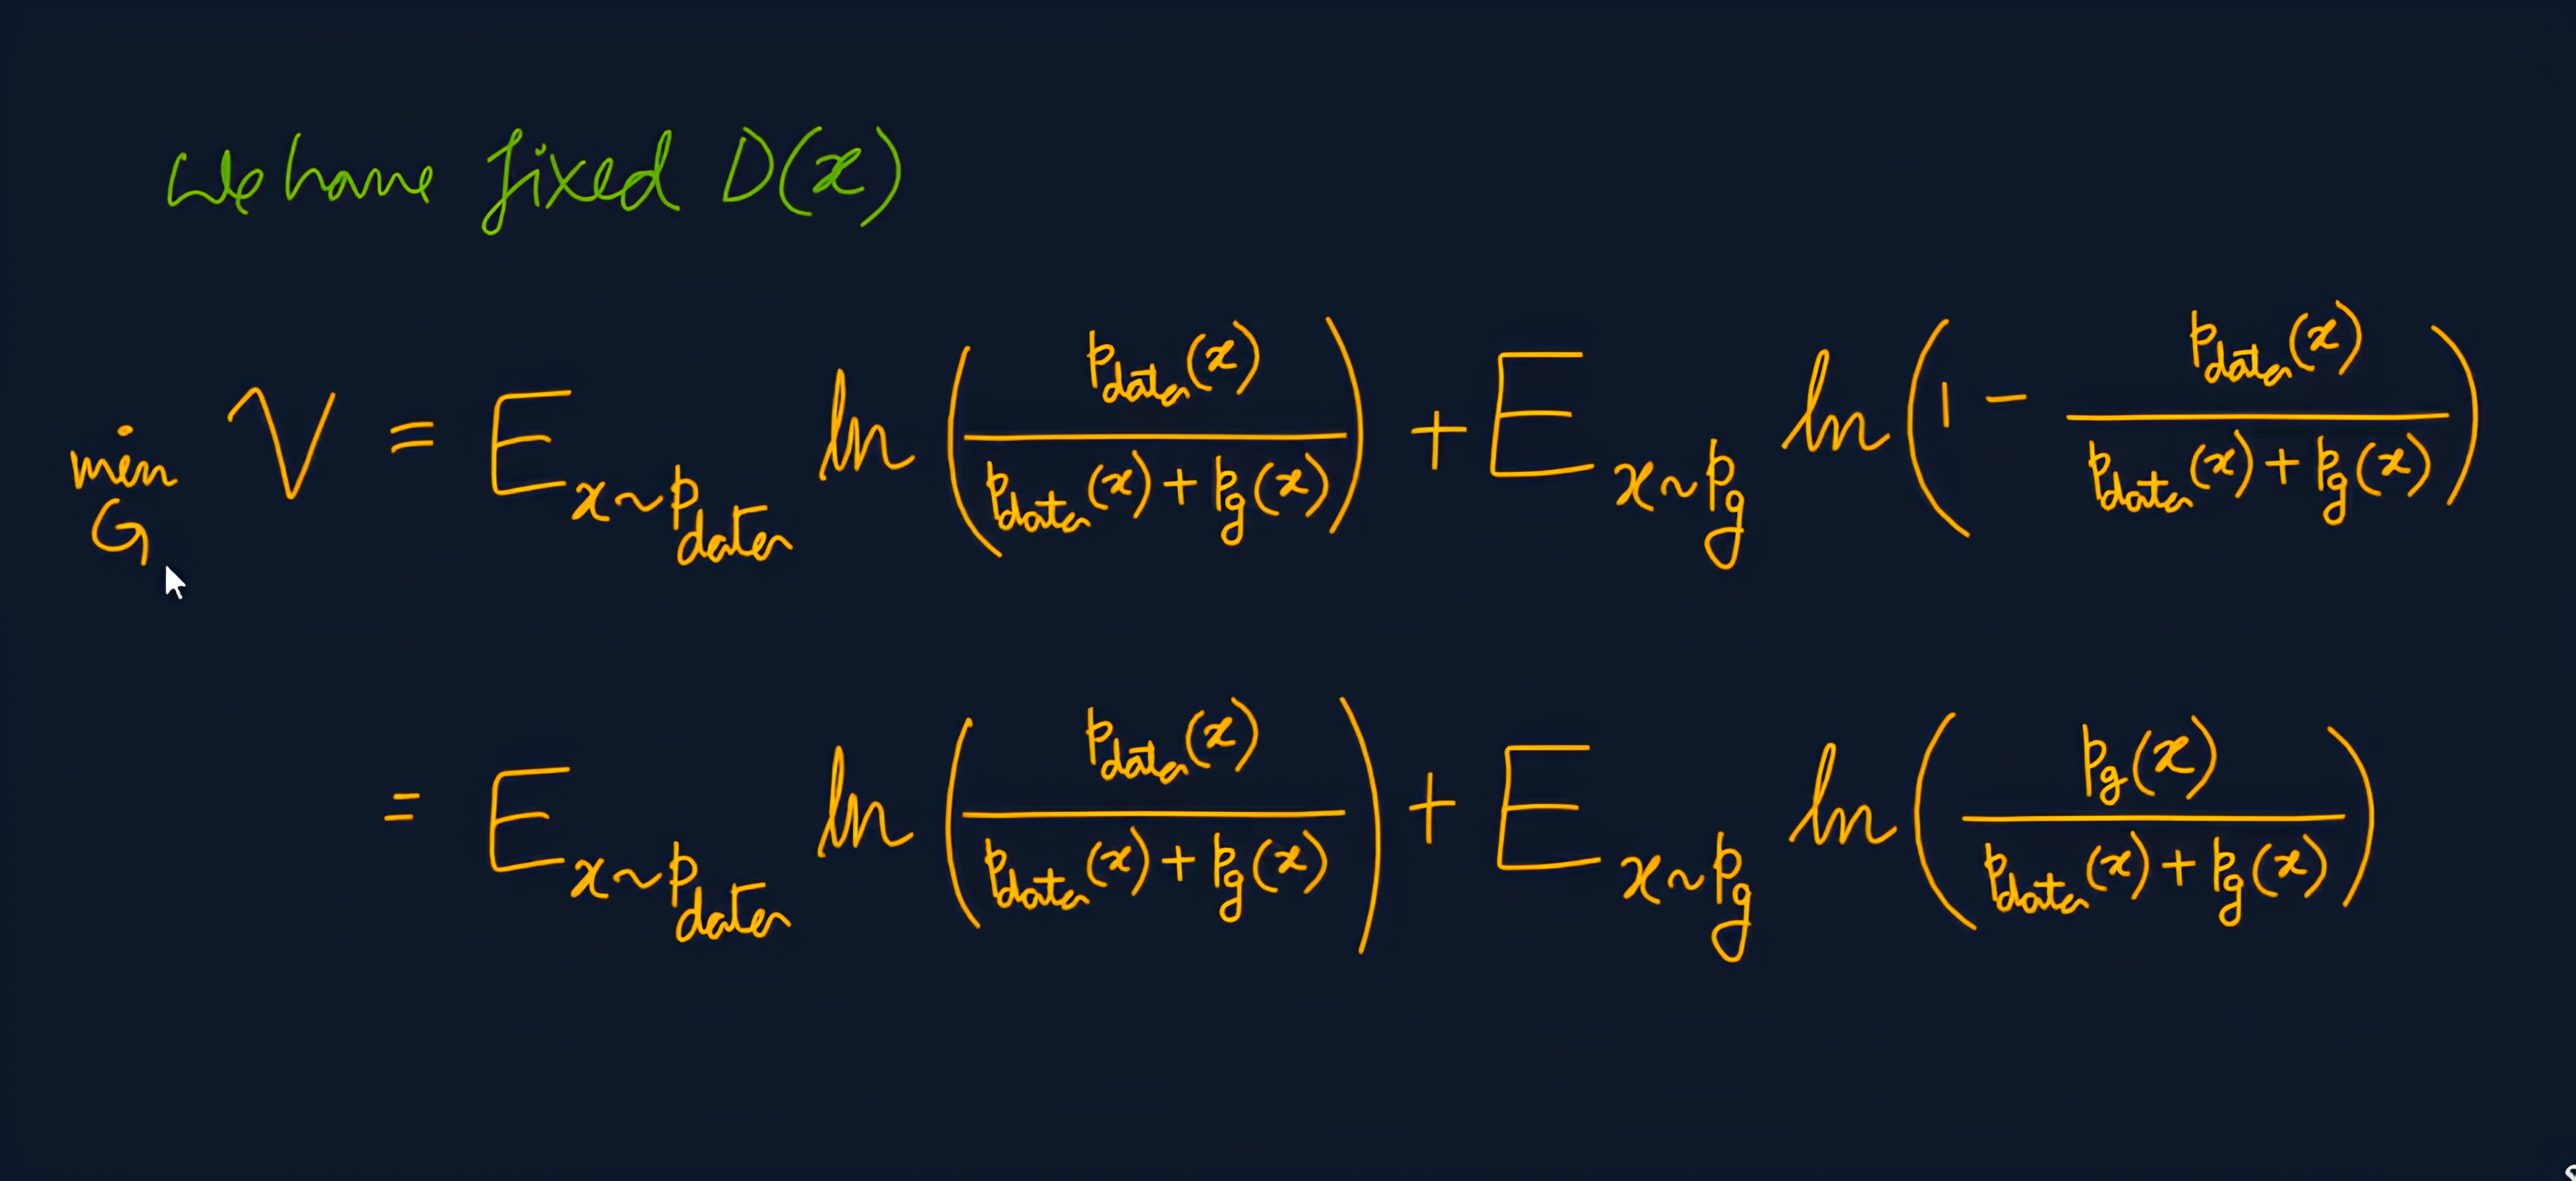 We have fixed D(x)
min_G V = E_{x~p_data} ln( p_data(x) / (p_data(x) + p_g(x)) ) + E_{x~p_g} ln( 1 - p_data(x) / (p_data(x) + p_g(x)) )
= E_{x~p_data} ln( p_data(x) / (p_data(x) + p_g(x)) ) + E_{x~p_g} ln( p_g(x) / (p_data(x) + p_g(x)) )